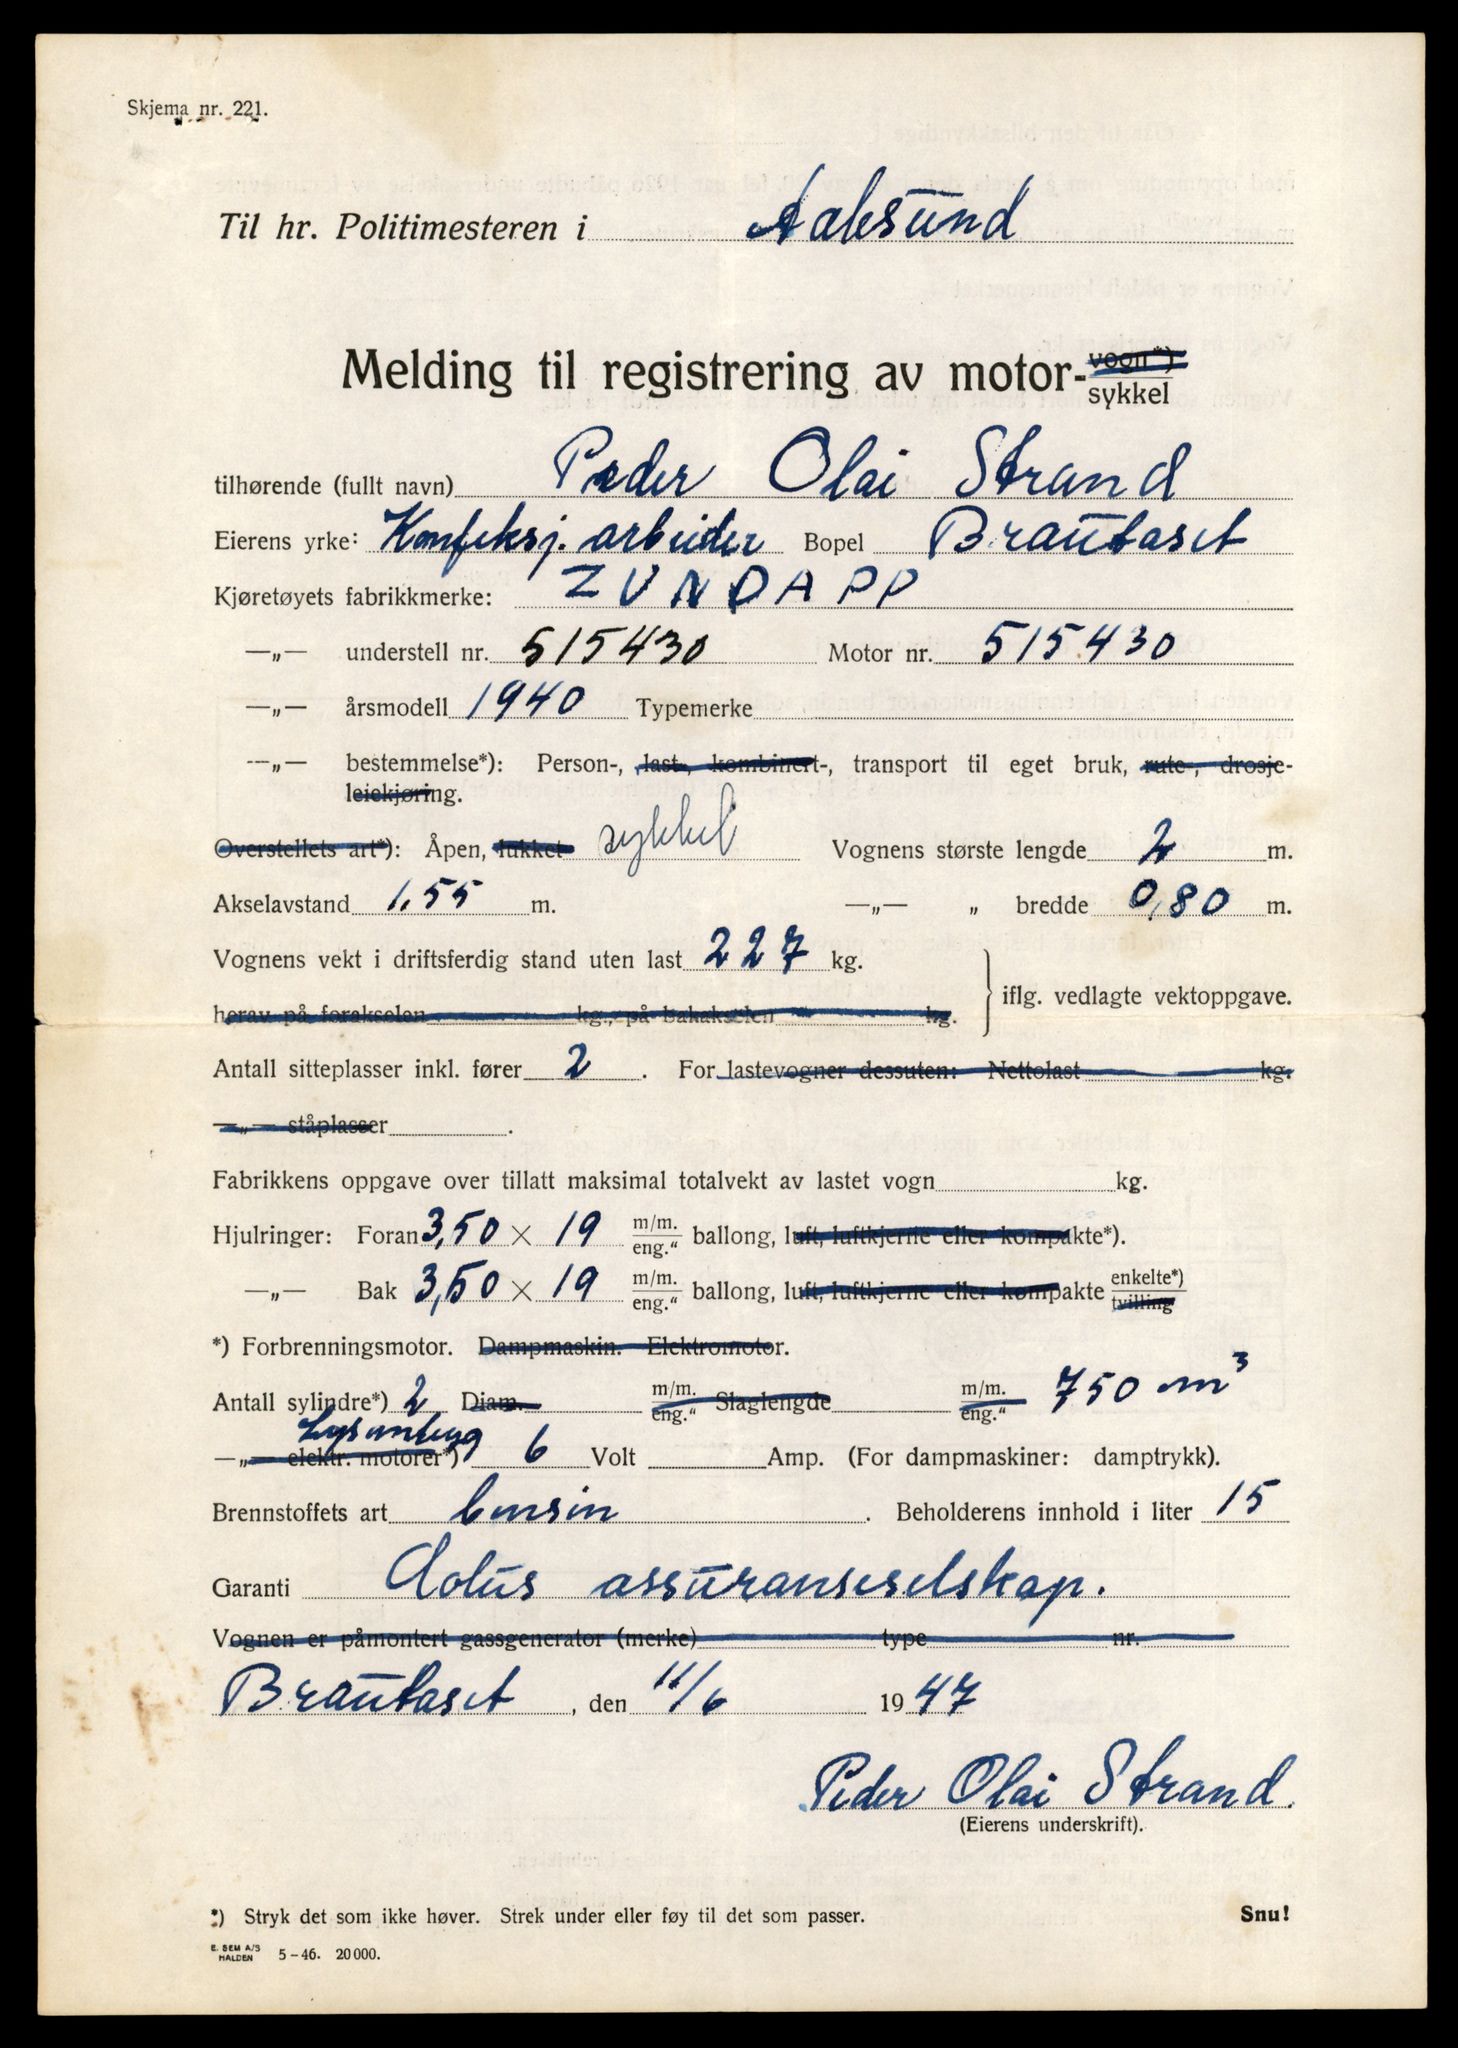 Skjema nr. 221.
Til hr. Politimesteren i Aalesund
Melding til registrering av motor- vogn*) sykkel
tilhørende (fullt navn) Peder Olai Strand
Eierens yrke: Konfeksj. arbeider Bopel Brautaset
Kjøretøyets fabrikkmerke: ZUNDAPP
—„— understell nr. 515430 Motor nr. 515430
—„— årsmodell 1940 Typemerke
—„— bestemmelse*): Person-, last-, kombinert-, transport til eget bruk, rute-, drosje-
leiekjøring.
Overstellets art*): Åpen, lukket sykkel Vognens største lengde 2 m.
Akselavstand 1,55 m. —„— „ bredde 0,80 m.
Vognens vekt i driftsferdig stand uten last 227 kg.
herav på forakselen kg., på bakakselen kg. iflg. vedlagte vektoppgave.
Antall sitteplasser inkl. fører 2 . For lastevogner dessuten: Nettolast kg.
—„— ståplasser .
Fabrikkens oppgave over tillatt maksimal totalvekt av lastet vogn kg.
Hjulringer: Foran 3,50 × 19 m/m. eng." ballong, luft, luftkjerne eller kompakte*).
—„— Bak 3,50 × 19 m/m. eng." ballong, luft, luftkjerne eller kompakte enkelte*) tvilling
*) Forbrenningsmotor. Dampmaskin. Elektromotor.
Antall sylindre*) 2 Diam. m/m. eng." Slaglengde m/m. eng." 750 m³
Lysanlegg
—„— elektr. motorer*) 6 Volt Amp. (For dampmaskiner: damptrykk).
Brennstoffets art bensin . Beholderens innhold i liter 15
Garanti Æolus assuranseselskap.
Vognen er påmontert gassgenerator (merke) type nr.
Brautaset , den 11/6 1947
Peder Olai Strand.
(Eierens underskrift).
*) Stryk det som ikke høver. Strek under eller føy til det som passer. Snu!
E. SEM A/S HALDEN 5-46. 20 000.